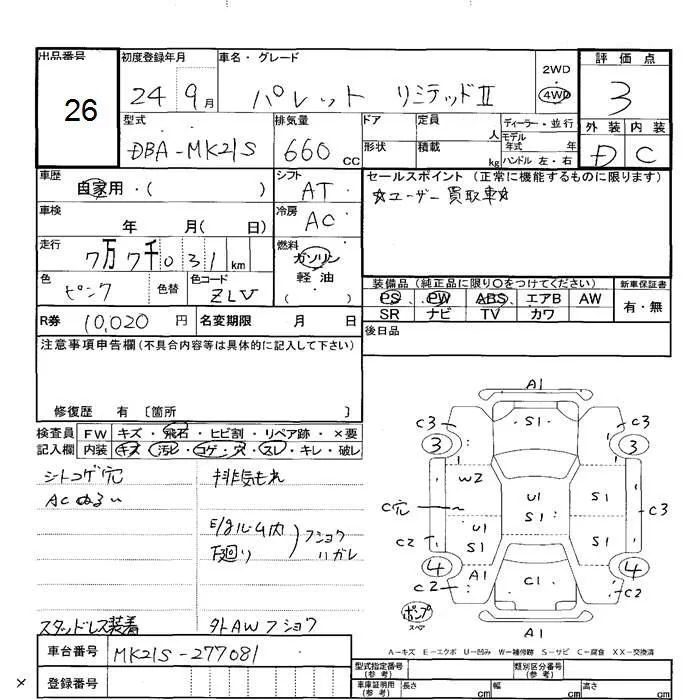 出品番号 初度登録年月 車名・グレード 2WD 評価点
26 24 9月 パレット リミテッドⅡ 4WD 3
型式 排気量 ドア 定員 人 ディーラー・並行 外装 内装
DBA-MK21S 660 CC 形状 積載 kg モデル年式 年 ハンドル 左・右 D C
車歴 自家用・( ) シフト AT セールスポイント (正常に機能するものに限ります)
☆ユーザー買取車☆
車検 年 月( 日) 冷房 AC
走行 7万7千031km 燃料 ガソリン 軽油 ( )
色 ピンク 色替 色コード ZLV
装備品 (純正品に限り○をつけてください) 新車保証書
PS PW ABS エアB AW 有・無
SR ナビ TV カワ
R券 10,020円 名変期限 月 日 後日品
注意事項申告欄(不具合内容等は具体的に記入して下さい)
修復歴 有 〔箇所 〕
検査員 FW キズ・飛石・ヒビ割・リペア跡・×要
記入欄 内装 キズ・汚レ・コゲ・穴・スレ・キレ・破レ
シートコゲ穴 排気もれ
ACぬるい
E/gルーム内
下廻り フショク
ハガレ
スタッドレス装着 外AWフショク
A1
C3 S1 C3
3 3
W2
U1 S1
C穴 S1 C3
U1
C2 S1 S1
4 4
C2 A1 C1 C2
ポンプ
スペア
A1
A-キズ E-エクボ U-凹み W-補修跡 S-サビ C-腐食 XX-交換済
車台番号 MK21S-277081
登録番号
型式指定番号 (参考) 類別区分番号 (参考)
車庫証明用 (参考) 長さ cm 幅 cm 高さ cm
×